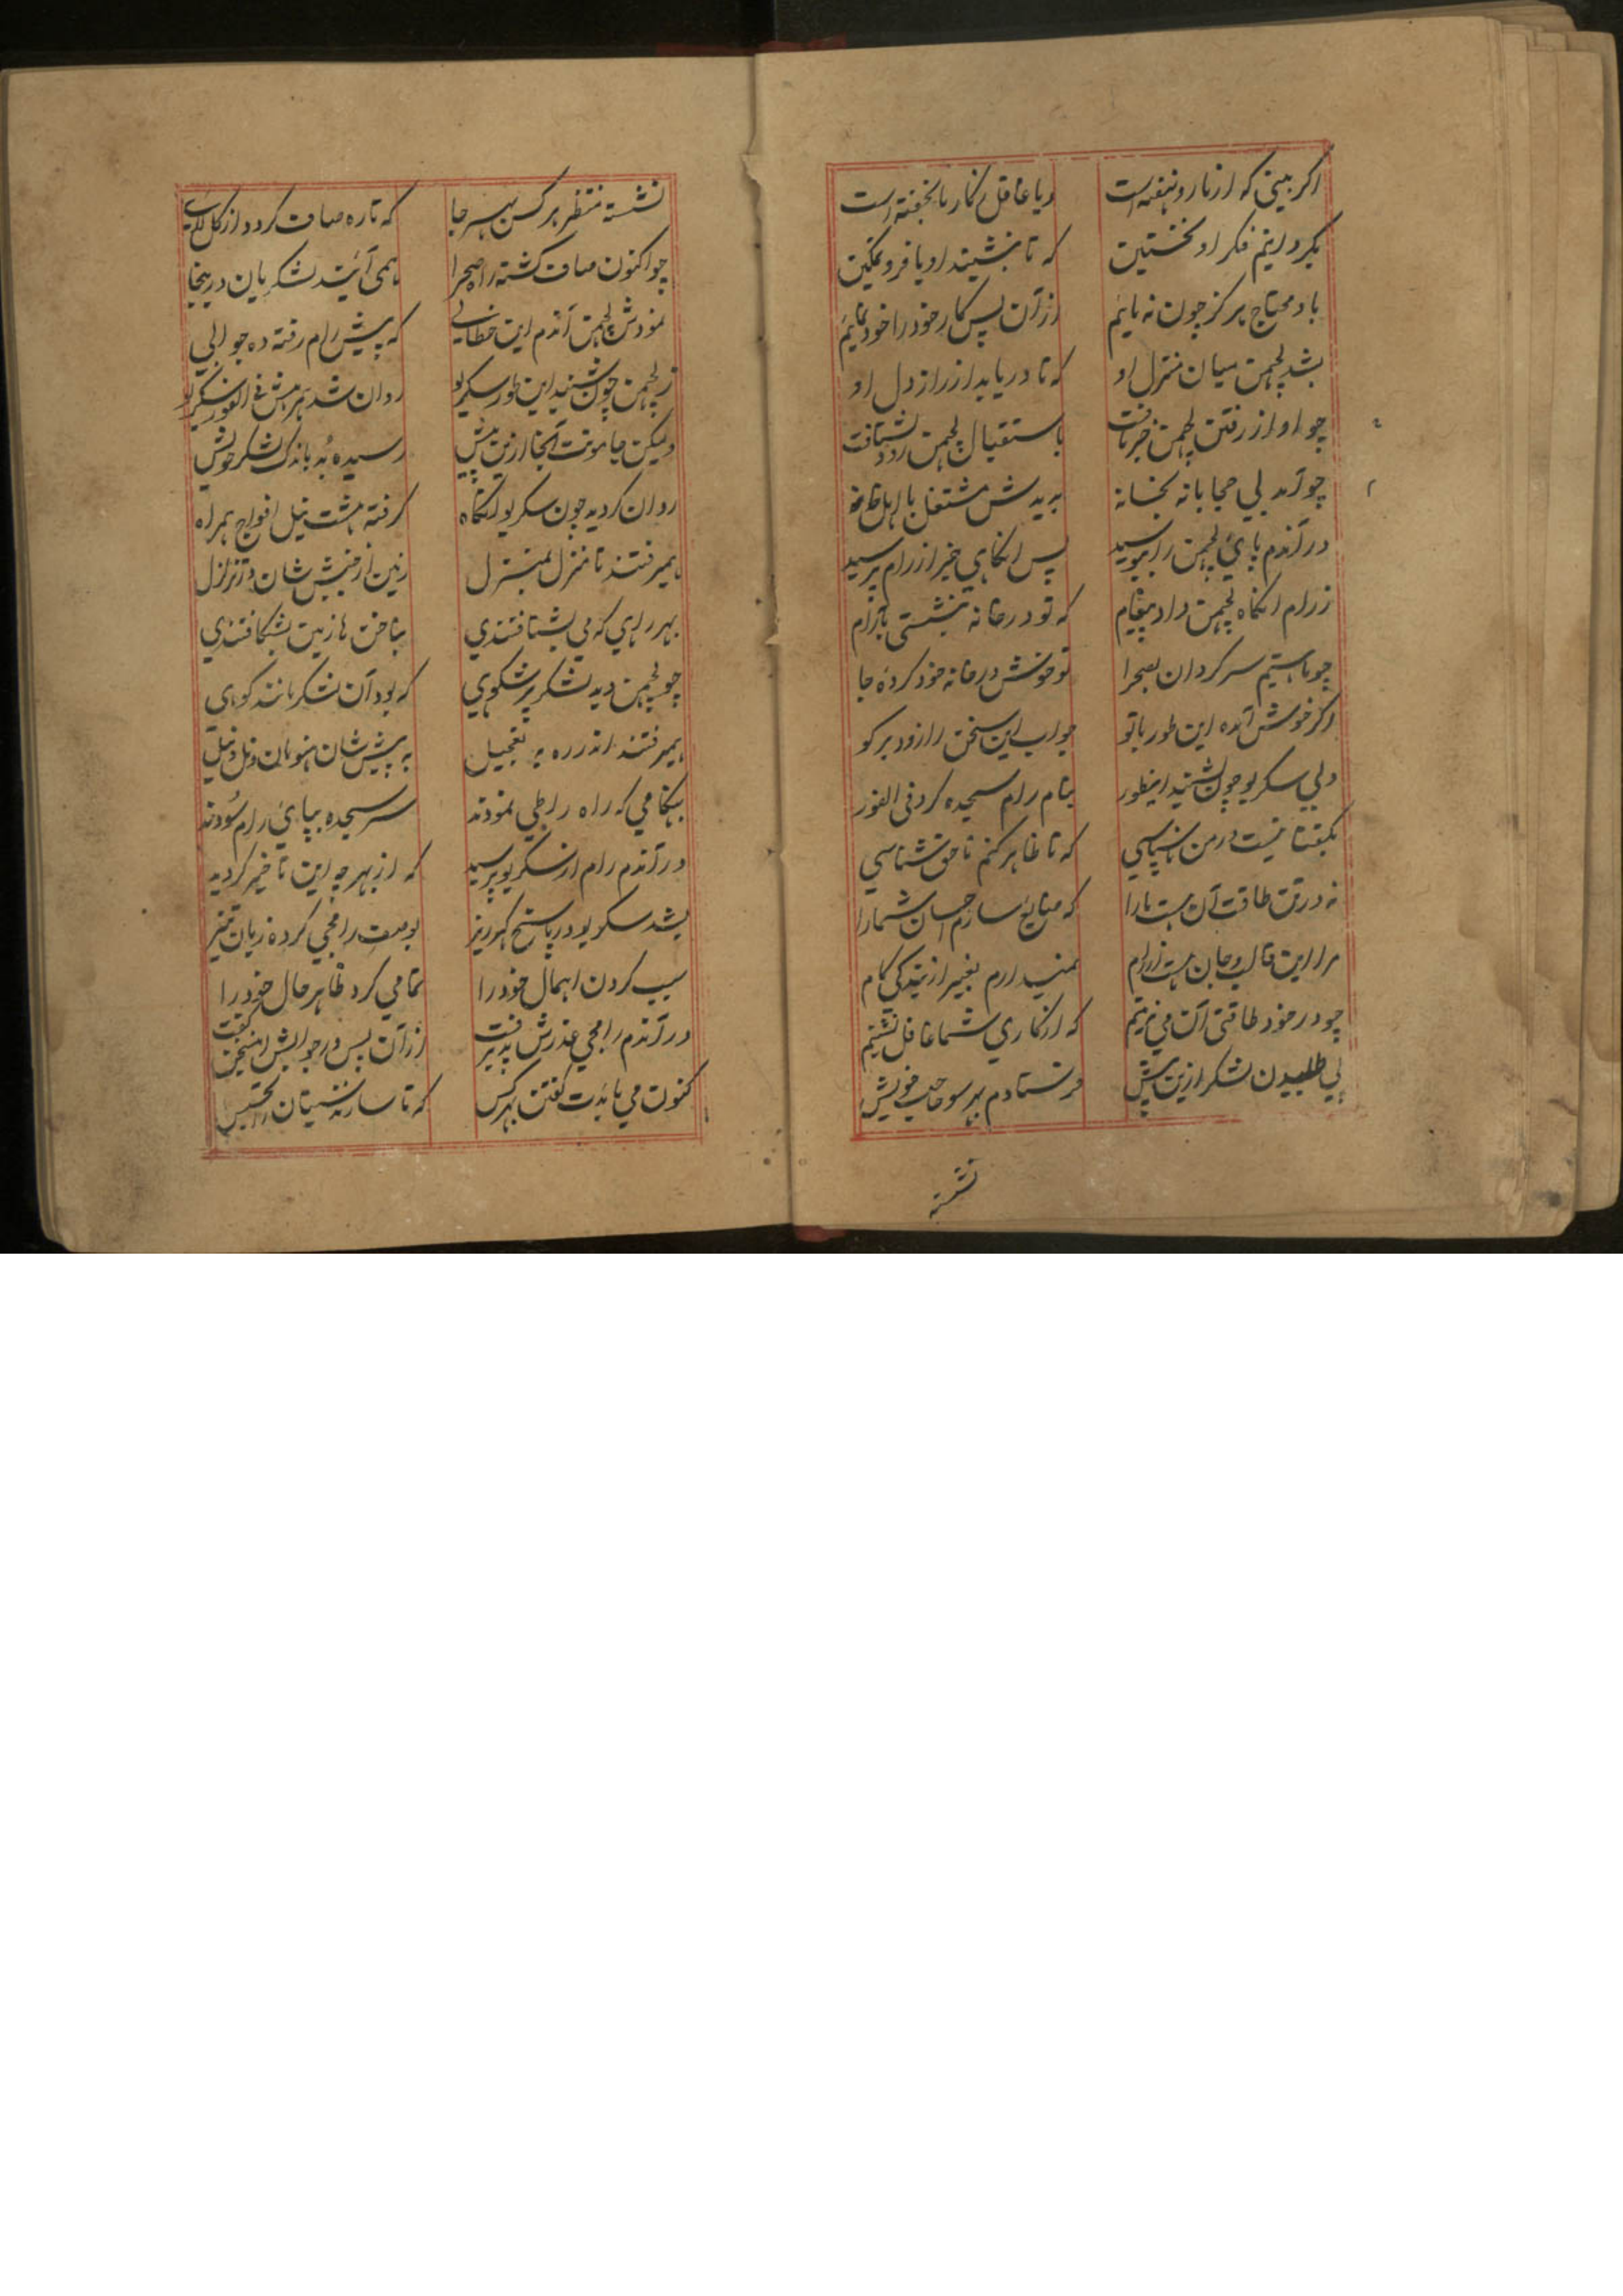 اکر بینی که از ما رو نهفته است ویا غافل زکار ما بخفته است
بکردانیم فکر او نخستین که تا بنشیند او با فر و تمکین
باو محتاج هرکز چون نه مایم از آن پس کار خود را خود نمایم
بشد لچمن میان منزل او که تا دریابد از راز دل او
چو او از رفتن لچمن خبر یافت باستقبال لچمن زود بشتافت
چو آمد بی محابانه بخانه بدیدش مشتغل با اهل خانه
در آندم پای لچمن را ببوسید پس انکاهی خبر از رام پرسید
ز رام انکاه لچمن داد پیغام که تو در خانه بنشستی بآرام
چو ما هستیم سرکردان بصحرا تو خوش در خانه خود کردهٔ جا
اکر خوش آمده این طور با تو جواب این سخن را زود برکو
ولی سکریو چون بشنید اینطور بنام رام سجده کرد فی الفور
بکفتا نیست در من ناسپاسی که تا ظاهر کنم ناحق شناسی
نه در تن طاقت آن هست ما را که ضایع سازم احسان شما را
مرا این قالب و جان هست از رام نمیدارم بغیر از بندکی کام
چو در خود طاقتی آن می نه بینم که از کاری شما غافل نشینم
پی طلبیدن لشکر ازین پیش فرستادم بهر سو حاجب خویش
نشسته
نشسته منتظر هر کس بهر جا که تا ره صاف کردد از کل و لای
چو اکنون صاف کشته راه صحرا همی آیند لشکریان درینجا
نمودش لچمن آندم این خطابی که پیش رام رفته ده جوابی
ز لچمن چون شنید این طور سکریو روان شد همرهش فی الفور سکریو
ولیکن جامونت آنجا ازین پیش رسیده بُد باندک لشکر خویش
روان کردید چون سکریو انکاه کرفته هشت نیل افواج همراه
همیرفتند تا منزل بمنزل زمین از جنبش شان در تزلزل
بهر راهی که می بشتافتندی بناخن ها زمین بشکافتندی
چو لچمن دید لشکر پر شکوهی که بود آن لشکر مانند کوهی
همیرفتند اندر ره به تعجیل به پیش شان هنومان و نل و نیل
بهنکامی که راه را طی نمودند سر سجده بپای رام سُودند
در آندم رام از سکریو پرسید که از بهر چه این تاخیر کردید
بشد سکریو در پاسخ کهرریز بوصف رامجی کرده زبان تیز
سبب کردن اهمال خود را تمامی کرد ظاهر حال خود را
در آندم رامجی عذرش پذیرفت از آن پس در جوابش اینچنین کفت
کنون می بایدت کفتن بهر کس که تا سازند سیتا را تجسس